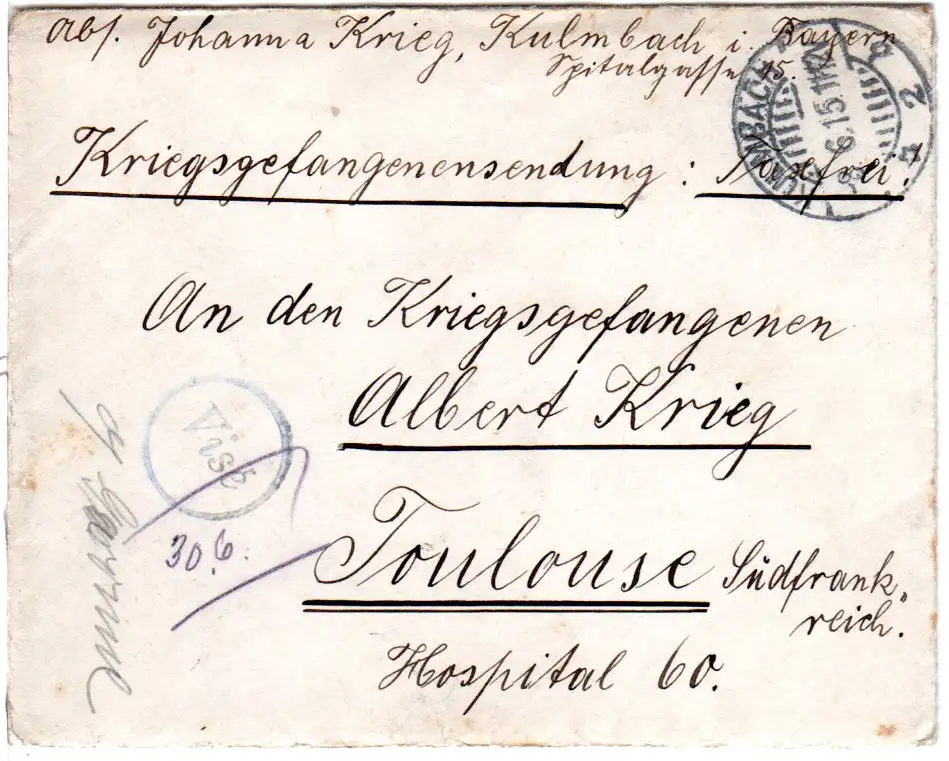 Abs. Johanna Krieg, Kulmbach i. Bayern
Spitalgasse 15.
KULMBACH
Kriegsgefangenensendung: Taxfrei.
An den Kriegsgefangenen
Albert Krieg
Visé
30.6.
Toulouse Südfrank„
reich.
Hospital 60.